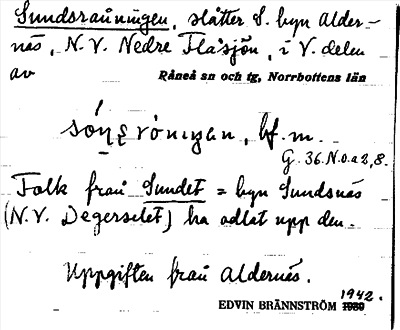 Sundsrauningen, slåtter S. byn Alder-
näs, N.V. Nedre Flåsjön, i V. delen
av Råneå sn och tg, Norrbottens län
bf. m.
G. 36. N.o.a 2, 8.
Folk från Sundet = byn Sundsnäs
(N.V. Degerselet) ha odlat upp den.
Uppgiften från Aldernäs.
1942.
EDVIN BRÄNNSTRÖM 1939